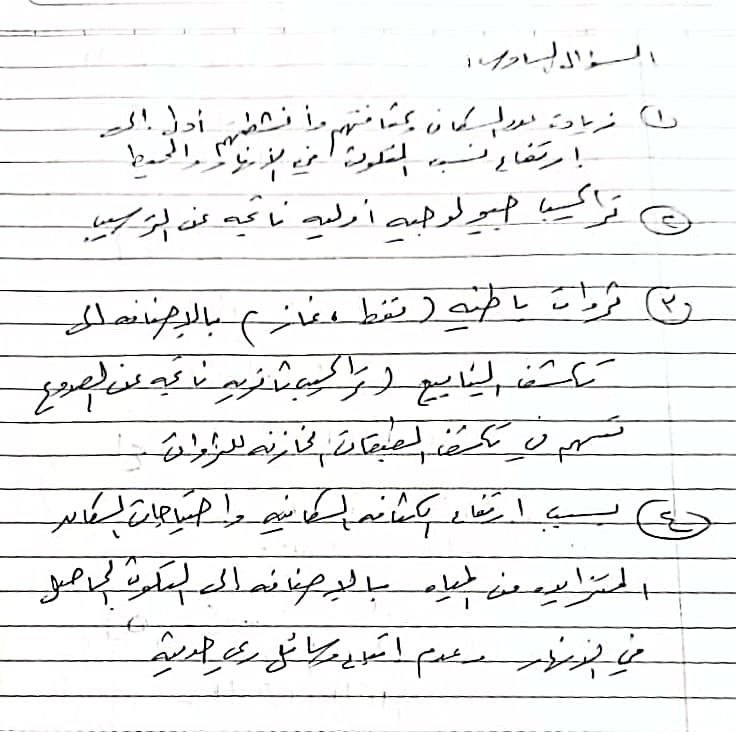 السؤال السادس:
١) زيادة عدد السكان وكثافتهم وأنشطتهم أدى إلى
ارتفاع نسب التلوث في الأنهار والمحيط
٢) تراكيب جيولوجيه أوليه ناتجه عن الترسيب
٣) ثروات باطنيه (نفط، غاز) بالإضافه إلى
تكشف الينابيع (تراكيب ثانويه ناتجه عن الصدوع
تسهم في تكشف الطبقات الخازنه للثروات.
٤) بسبب ارتفاع الكثافه السكانيه واحتياجات السكان
المتزايده من المياه بالإضافه إلى التلوث الحاصل
في الأنهار وعدم اتباع وسائل ري حديثة